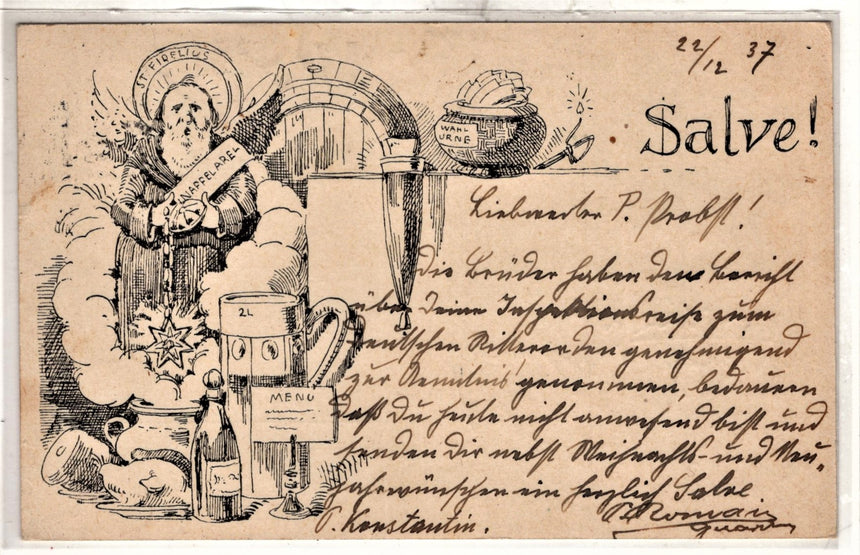 22/12 37
ST. FIDELIUS
KNAPPELAREI
WAHL
URNE
Salve!
Liebwerter P. Probst!
Die Brüder haben den Bericht
über Deine Inspektionsreise zum
deutschen Ritterorden genehmigend
zur Kenntnis genommen, bedauern
daß Du heute nicht anwesend bist und
senden Dir nebst Weihnachts- und Neu-
jahrwünschen ein herzlich Salve
P. Konstantin. P. Romain
2L
MENU